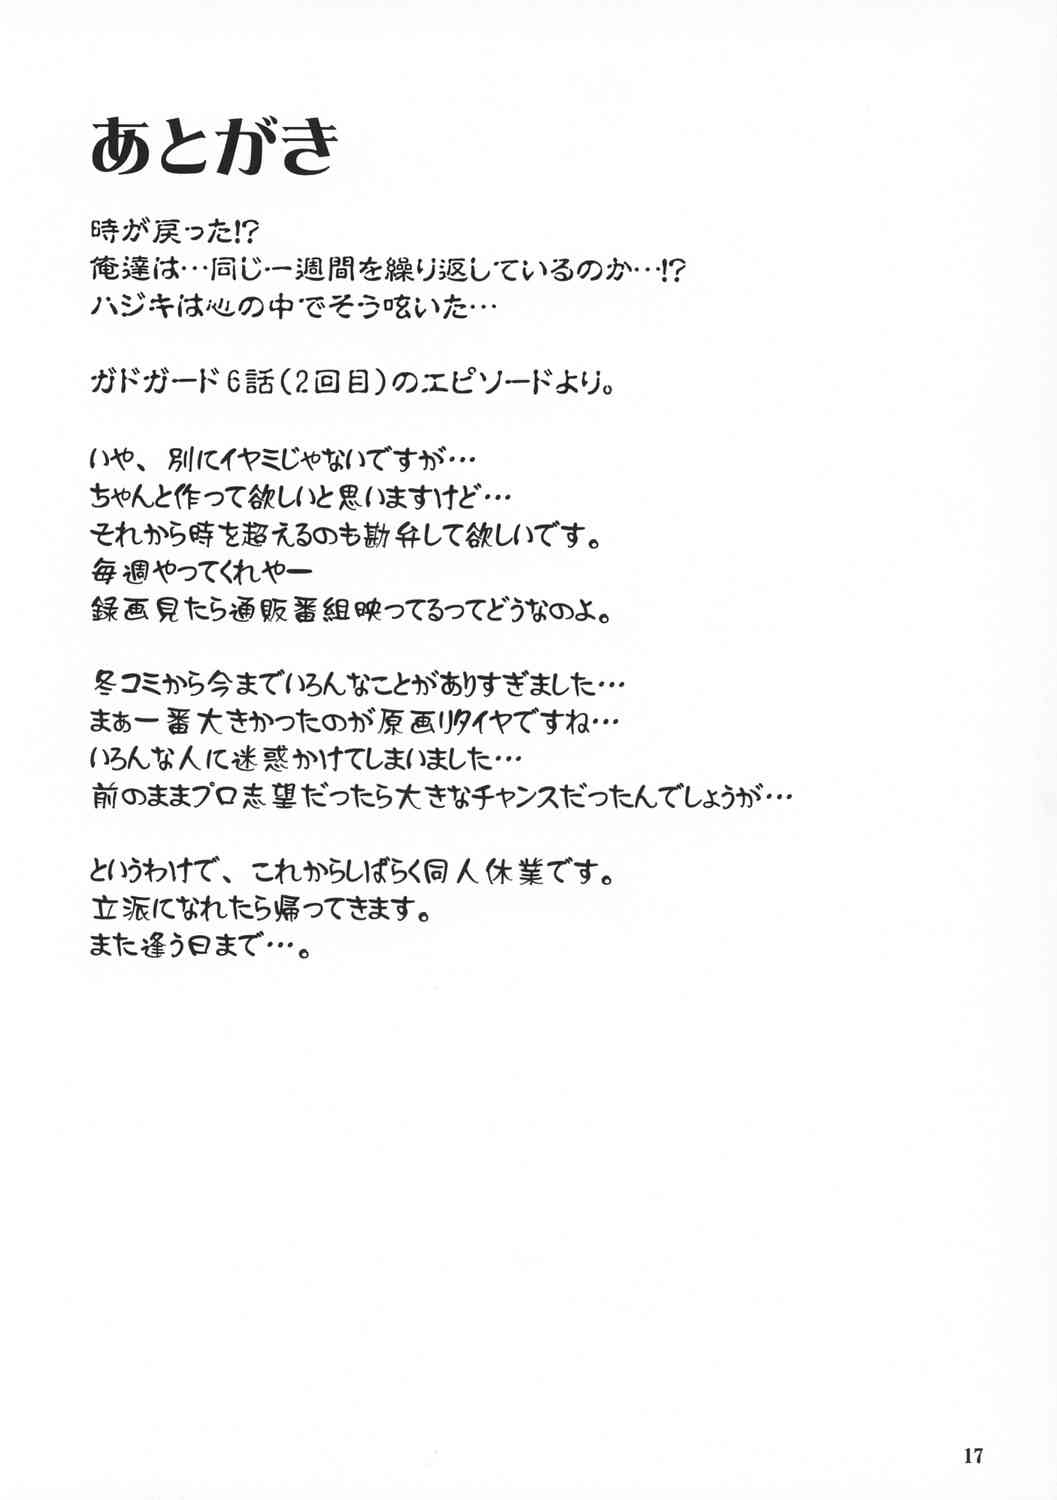 あとがき
時が戻った!?
俺達は…同じ一週間を繰り返しているのか…!?
ハジキは心の中でそう呟いた…
ガドガード6話(2回目)のエピソードより。
いや、別にイヤミじゃないですが…
ちゃんと作って欲しいと思いますけど…
それから時を超えるのも勘弁して欲しいです。
毎週やってくれやー
録画見たら通販番組映ってるってどうなのよ。
冬コミから今までいろんなことがありすぎました…
まぁ一番大きかったのが原画リタイヤですね…
いろんな人に迷惑かけてしまいました…
前のままプロ志望だったら大きなチャンスだったんでしょうが…
というわけで、これからしばらく同人休業です。
立派になれたら帰ってきます。
また逢う日まで…。
17